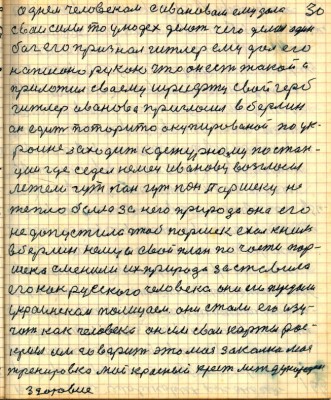 30
однем человеком с ивановым ему дала
свои силы то и людех делат чего делал один
бог его признал гитлер ему дал его
написано рукою что он ест такой и
приложил своему шрифту свой герб
гитлер иванова пригласил в берлин
он едит по територито окупированой по ук
роине заходит к дежурному по стан
ции где седел немец иванову возгласил
гут пан гут пон Паршеку не
тепло было за него природа она его
не допустила чтоб паршек ехал к ним
в берлин немцы свой план по части пар
шека сменили их природа заставила
его как русского человека они им
украинскои полицаем они стали его изу
чат как человека он им свои карты рос
крыл им говарит это моя закалка моя
тренировка мой красный крест международн
здоровие